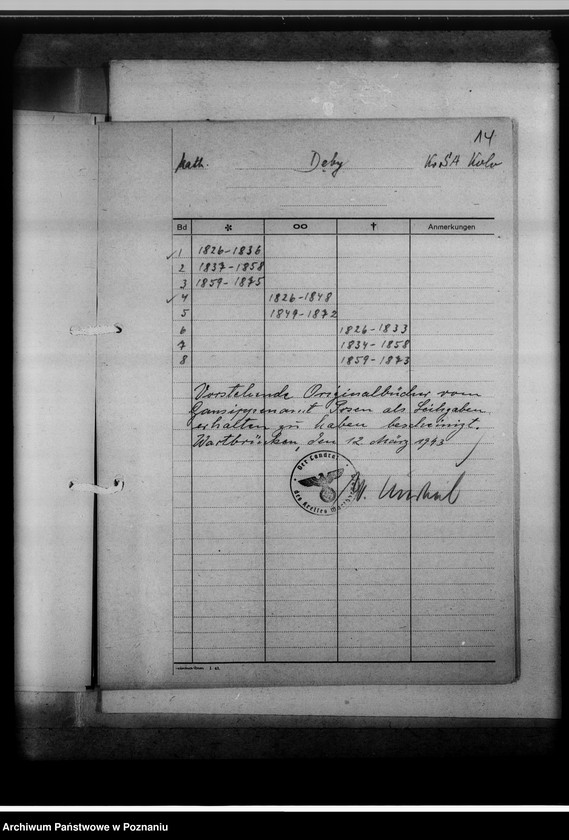 14
kath. Dęby KrSA Kolo
Bd * oo † Anmerkungen
✓ 1 1826-1836
2 1837-1858
3 1859-1875
✓ 4 1826-1848
5 1849-1872
6 1826-1833
7 1834-1858
8 1859-1873
Vorstehende Originalbücher vom
Gausippenamt Posen als Leihgaben
erhalten zu haben bescheinigt.
Wartbrücken, den 12 März 1943
Der Landrat
des Kreises
I. 43.
Archiwum Państwowe w Poznaniu